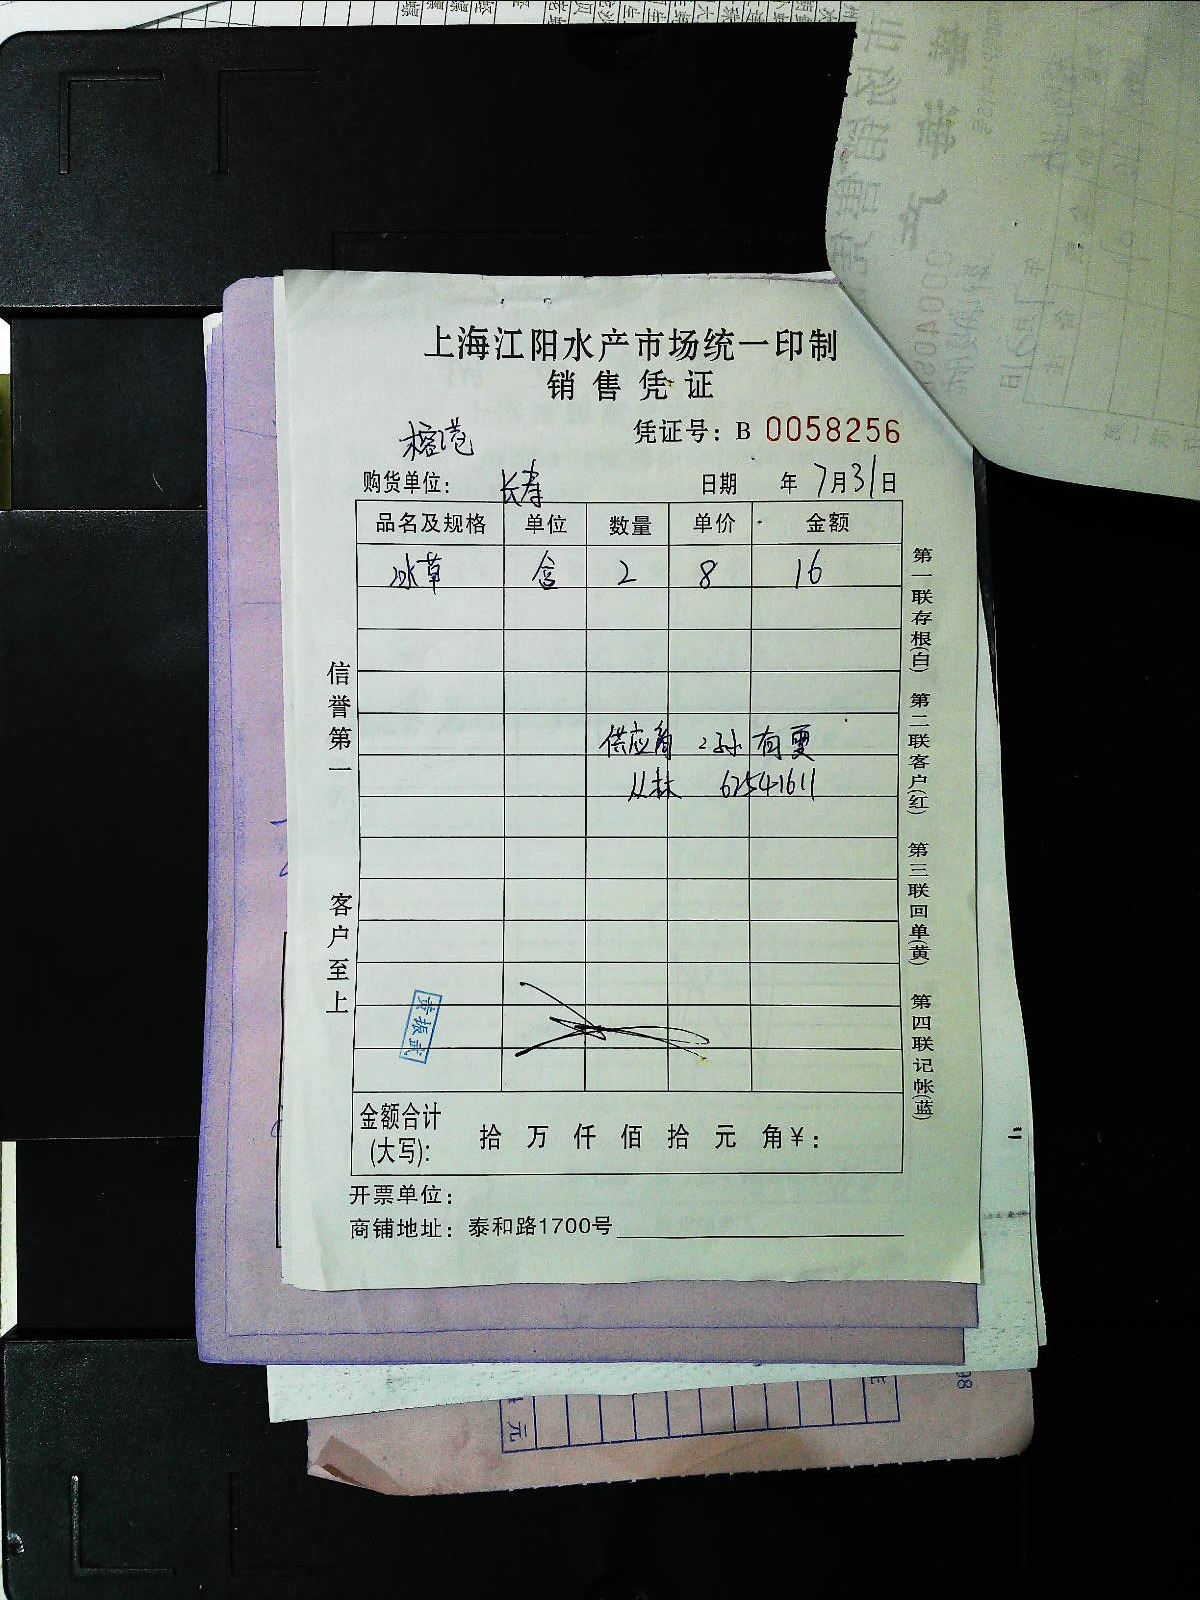 上海江阳水产市场统一印制
销售凭证
凭证号：B 0058256
榕港
购货单位： 长寿 日期 年 7月31日
品名及规格 单位 数量 单价 金额
冰草 盒 2 8 16
供应商 孙有雯
从林 62541611
信誉第一
客户至上
第一联存根(白) 第二联客户(红) 第三联回单(黄) 第四联记帐(蓝)
黄振武
金额合计(大写)： 拾 万 仟 佰 拾 元 角￥：
开票单位：
商铺地址：泰和路1700号